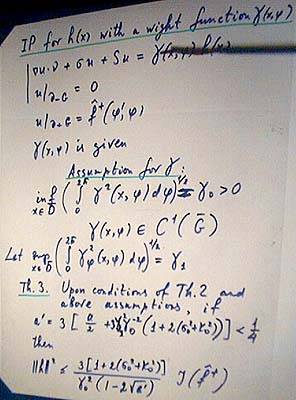 IP for h(x) with a wight function γ(x,φ)
∇u·ν + σu + Su = γ(x,φ) h(x)
u/∂_G = 0
u/∂₊G = f̂⁺(φ',φ)
γ(x,φ) is given
Assumption for γ:
inf x∈D (∫₀^{2π} γ²(x,φ) dφ)^{1/2} = γ₀ > 0
γ(x,φ) ∈ C¹(Ḡ)
Let sup x∈D (∫₀^{2π} γ_φ²(x,φ) dφ)^{1/2} = γ₁
Th. 3. Upon conditions of Th. 2 and
above assumptions, if
a' = 3[a/2 + 3γ₁²γ₀⁻²(1+2(σ₀²+K₀²))] < 1/4
then
‖h‖² ≤ 3[1+2(σ₀²+K₀²)] / γ₀²(1-2√a') J(f̂⁺)